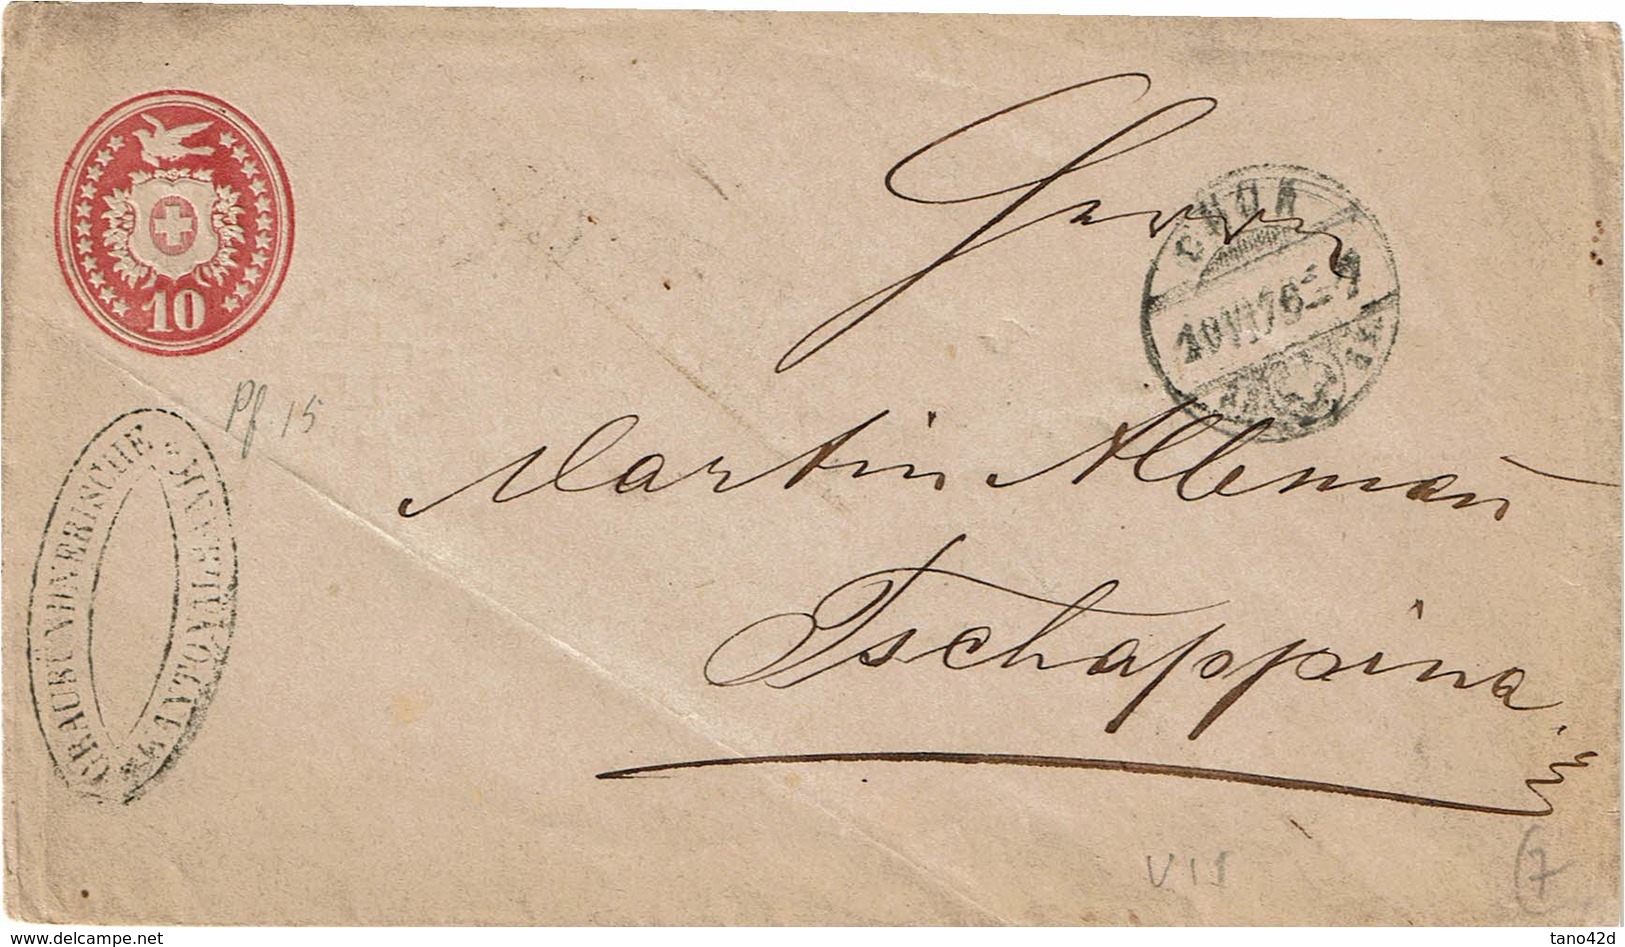 10
Pf. 15
GRAUBÜNDNERISCHE
KANTONALBANK
CHUR
10 VI 76
Herrn
Martin Alleman
Tschappina.
VII
7
www.delcampe.net
tano42d